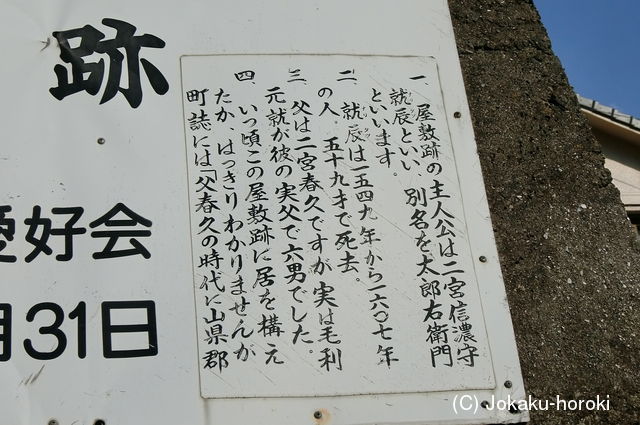 跡
一、屋敷跡の主人公は二宮信濃守
就辰といい、別名を太郎右衛門
といいます。
二、就辰は一五四九年から一六〇七年
の人、五十九才で死去。
三、父は二宮春久ですが実は毛利
元就が彼の実父で六男でした。
四、いつ頃この屋敷跡に居を構え
たか、はっきりわかりませんが
町誌には「父春久の時代に山県郡
愛好会
月31日
(C) Jokaku-horoki